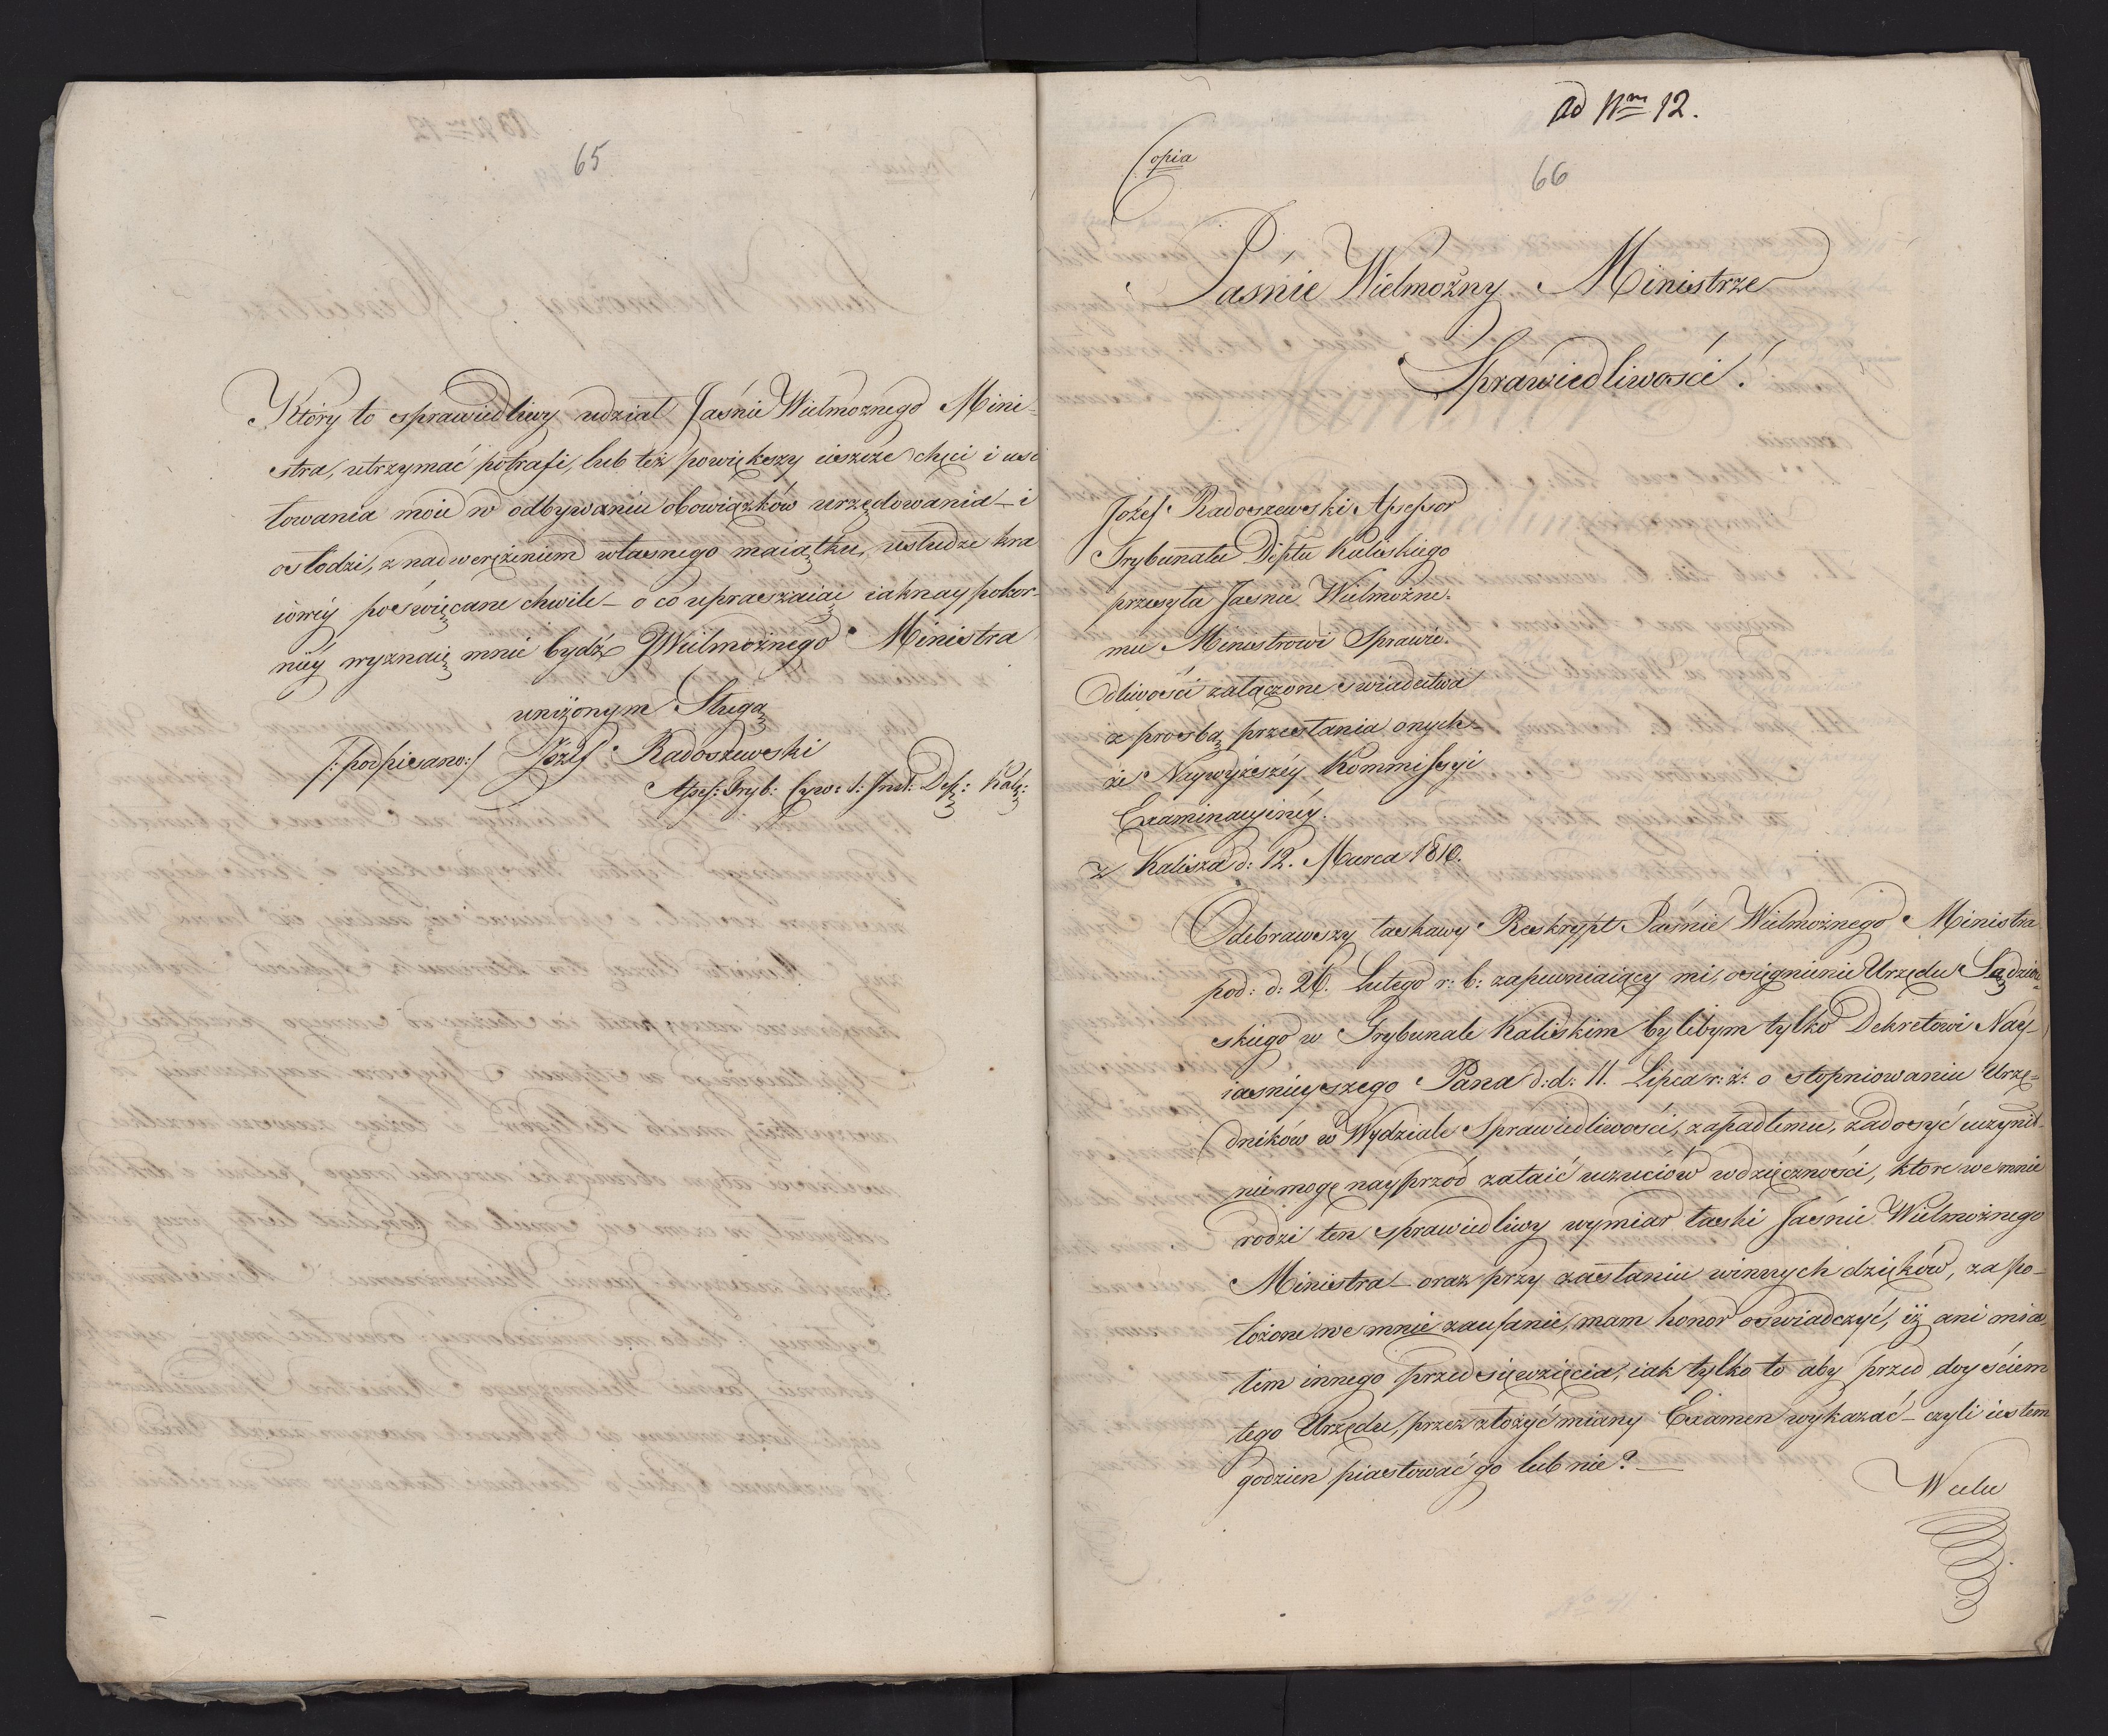 65
Który to sprawiedliwy udział Jaśnie Wielmoznego Mini-
stra, utrzymać potrafi, lub też powiększy ieszcze chęci i usi
łowania moie w odbywaniu obowiązków urzędowania – i
osłodzi, z nadweręzeniem własnego maiątku, usłudze kra
iowéy poświęcane chwile – o co upraszaiąc iaknaypokor-
niéy wyznaię mnie bydź JWielmożnego Ministra
uniżonym Sługą
/:podpisano:/ Józef Radoszewski
Assess: Tryb: Cyw: I: Inst: Dep: Kalis:
ad Nrm 12.
Copia
66
Jaśnie Wielmożny Ministrze
Sprawiedliwości!
Józef Radoszewski Assessor
Trybunału Dpttu Kaliskiego
przesyła Jasnie Wielmożne-
mu Ministrowi Sprawie-
dliwości załączone swiadectwa
z prosbą przesłania onych-
że Naywyższéy Kommissyi
Examinacyinéy.
z Kalisza d: 12. Marca 1810.
Odebrawszy łaskawy Reskrypt Jaśnie Wielmożnego Ministra
pod: d: 26. Lutego r: b: zapewniaiący mi, osięgnienie Urzędu Sądziow-
skiego w Trybunale Kaliskim bylebym tylko Dekretowi Nay-
iasnieyszego Pana d: d: 11. Lipca r: z: o stopniowaniu Urzę-
dników w Wydziale Sprawiedliwości, zapadłemu, zadosyć uczynił –
nie mogę nayprzód zataić uczuciów wdzięczności, które we mnie
rodzi ten sprawiedliwy wymiar łaski Jaśnie Wielmożnego
Ministra – oraz przy zasłaniu winnych dzięków, za po-
łożone we mnie zaufanie, mam honor oświadczyć, iż ani mia
łem innego przedsięwzięcia, iak tylko to aby przed doyściem
tego Urzędu, przez złożyć miany Examen wykazać – czyli iestem
godzien piastować go lub nie? –
Wielu